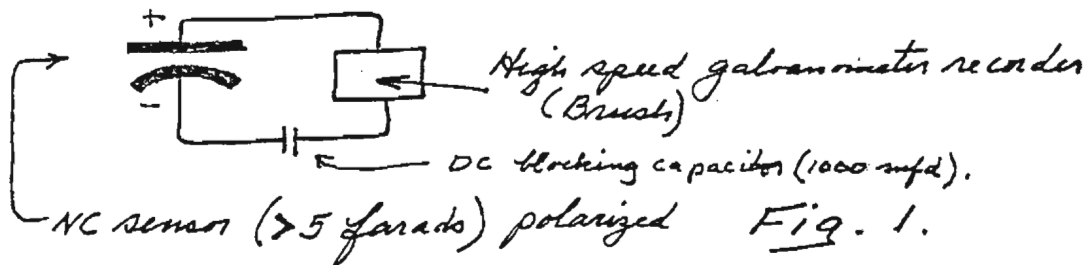 +
-
High speed galvanometer recorder
(Brush)
DC blocking capacitor (1000 mfd).
NC sensor (>5 farads) polarized Fig. 1.